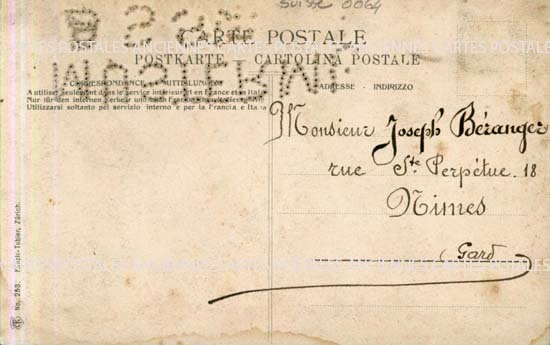 Suisse 0064
CARTE POSTALE
POSTKARTE - CARTOLINA POSTALE
CORRESPONDANCE - MITTEILUNGEN
ADRESSE - INDIRIZZO
A utiliser seulement dans le service intérieur et en France et en Italie
Nur für den internen Verkehr und nach
Utilizzarsi soltanto pel servizio interno e per la Francia e Italia
Monsieur Joseph Béranger
rue Ste Perpétue. 18
Nimes
(Gard)
No. 263.
Zürich.
CARTES POSTALES ANCIENNES